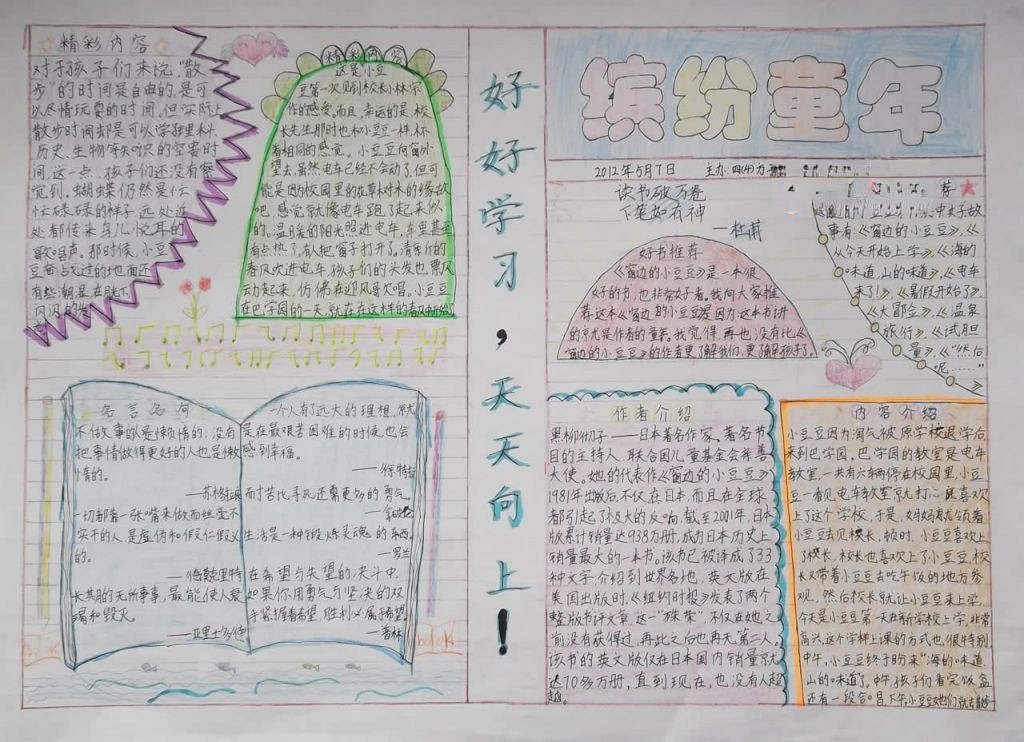 精彩内容
对于孩子们来说,“散
步”的时间是自由的,是可
以尽情玩耍的时间,但实际上
散步时间却是可以学到理科、
历史、生物等知识的宝贵时
间,这一点,孩子们还没有察
觉到。蝴蝶仍然是忙
忙碌碌的样子,远处近
处都传来鸟儿悦耳的
歌唱声。那时候,小豆
豆
有些潮湿,在
闪闪的
精彩内容
这是小豆
豆第一次见到校长小林宗
作的感受。而且,幸运的是校
长先生那时也和小豆豆一样,怀
着相同的感觉。小豆豆向窗外
望去,虽然电车已经不会动了,但可
能是因为校园里的花草树木的缘故
吧,感觉就像电车跑了起来似
的。温暖的阳光照进电车,车里甚至
有点热了。有人把窗子打开了。清新的
春风吹进电车,孩子们的头发也飘
动起来,仿佛在迎风歌唱。小豆豆
在巴学园的一天,就在这样的春风中开始
名言名句
不做事的是懒惰的;没有
把事情做得更好的人也是懒
惰的。
——苏格拉底
一切都靠一张嘴来做而丝毫不
实干的人,是虚伪和假仁假义
的。
——德谟克里特
长共船的无所事事,最能使人衰
竭和毁灭。
——亚里士多德
一个人有了远大的理想,就
是在最艰苦困难的时候,也会
感到幸福。
——徐特立
而吃苦比寻死还需更多的勇气。
生活是一种锻炼灵魂的东西。
——罗兰
在希望与失望的决斗中,
如果你用勇气与坚决的双
手紧握着希望,胜利必属于希望。
——普林
好好学习,天天向上!
缤纷童年
2012年5月7日 主办:四(4)
读书破万卷
下笔如有神
——杜甫
好书推荐
《窗边的小豆豆》是一本很
好的书,也非常好看。我向大家推
荐这本《窗边的小豆豆》是因为这本书讲
的就是作者的童年。我觉得,再也没有比《
窗边的小豆豆》的作者更了解我们,更了解孩子了。
荐
故
事有:《窗边的小豆豆》、《
从今天开始上学》、《海的
味道,山的味道》、《电车
来了!》、《暑假开始了》
《大冒险》、《温泉
旅行》、《试胆
量》、《“然后
呢……”
作者介绍
黑柳彻子——日本著名作家、著名节
目的主持人,联合国儿童基金会亲善
大使。她的代表作《窗边的小豆豆》
1981年出版后,不仅在日本,而且在全球
都引起了极大的反响,截至2001年,日本
版累计销量达938万册,成为日本历史上
销量最大的一本书。该书已被译成了33
种文字介绍到世界各地,英文版在
美国出版时,《纽约时报》发表了两个
整版书评文章,这一“殊荣”,不仅在她之
前没有获得过,再此之后也再无第二人。
该书的英文版仅在日本国内销量就
达70多万册,直到现在,也没有人超
越。
内容介绍
小豆豆因为淘气,被原学校退学后
来到巴学园。巴学园的教室是电车
教室,一共有六辆停在校园里,小豆
豆一看见电车教室就打心眼喜欢
上了这个学校,于是,妈妈就领着
小豆豆去见校长,顿时,小豆豆喜欢上
了校长,校长也喜欢上了小豆豆,校
长又带着小豆豆去吃午饭的地方参
观。然后校长就让小豆豆来上学。
今天是小豆豆第一天在新学校上学,非常
高兴,这个学样上课的方式也很特别。
中午,小豆豆终于盼来“海的味道,
山的味道”了。中午,孩子们看完饭盒
还有一段合唱,下午,小豆豆她们就去散步